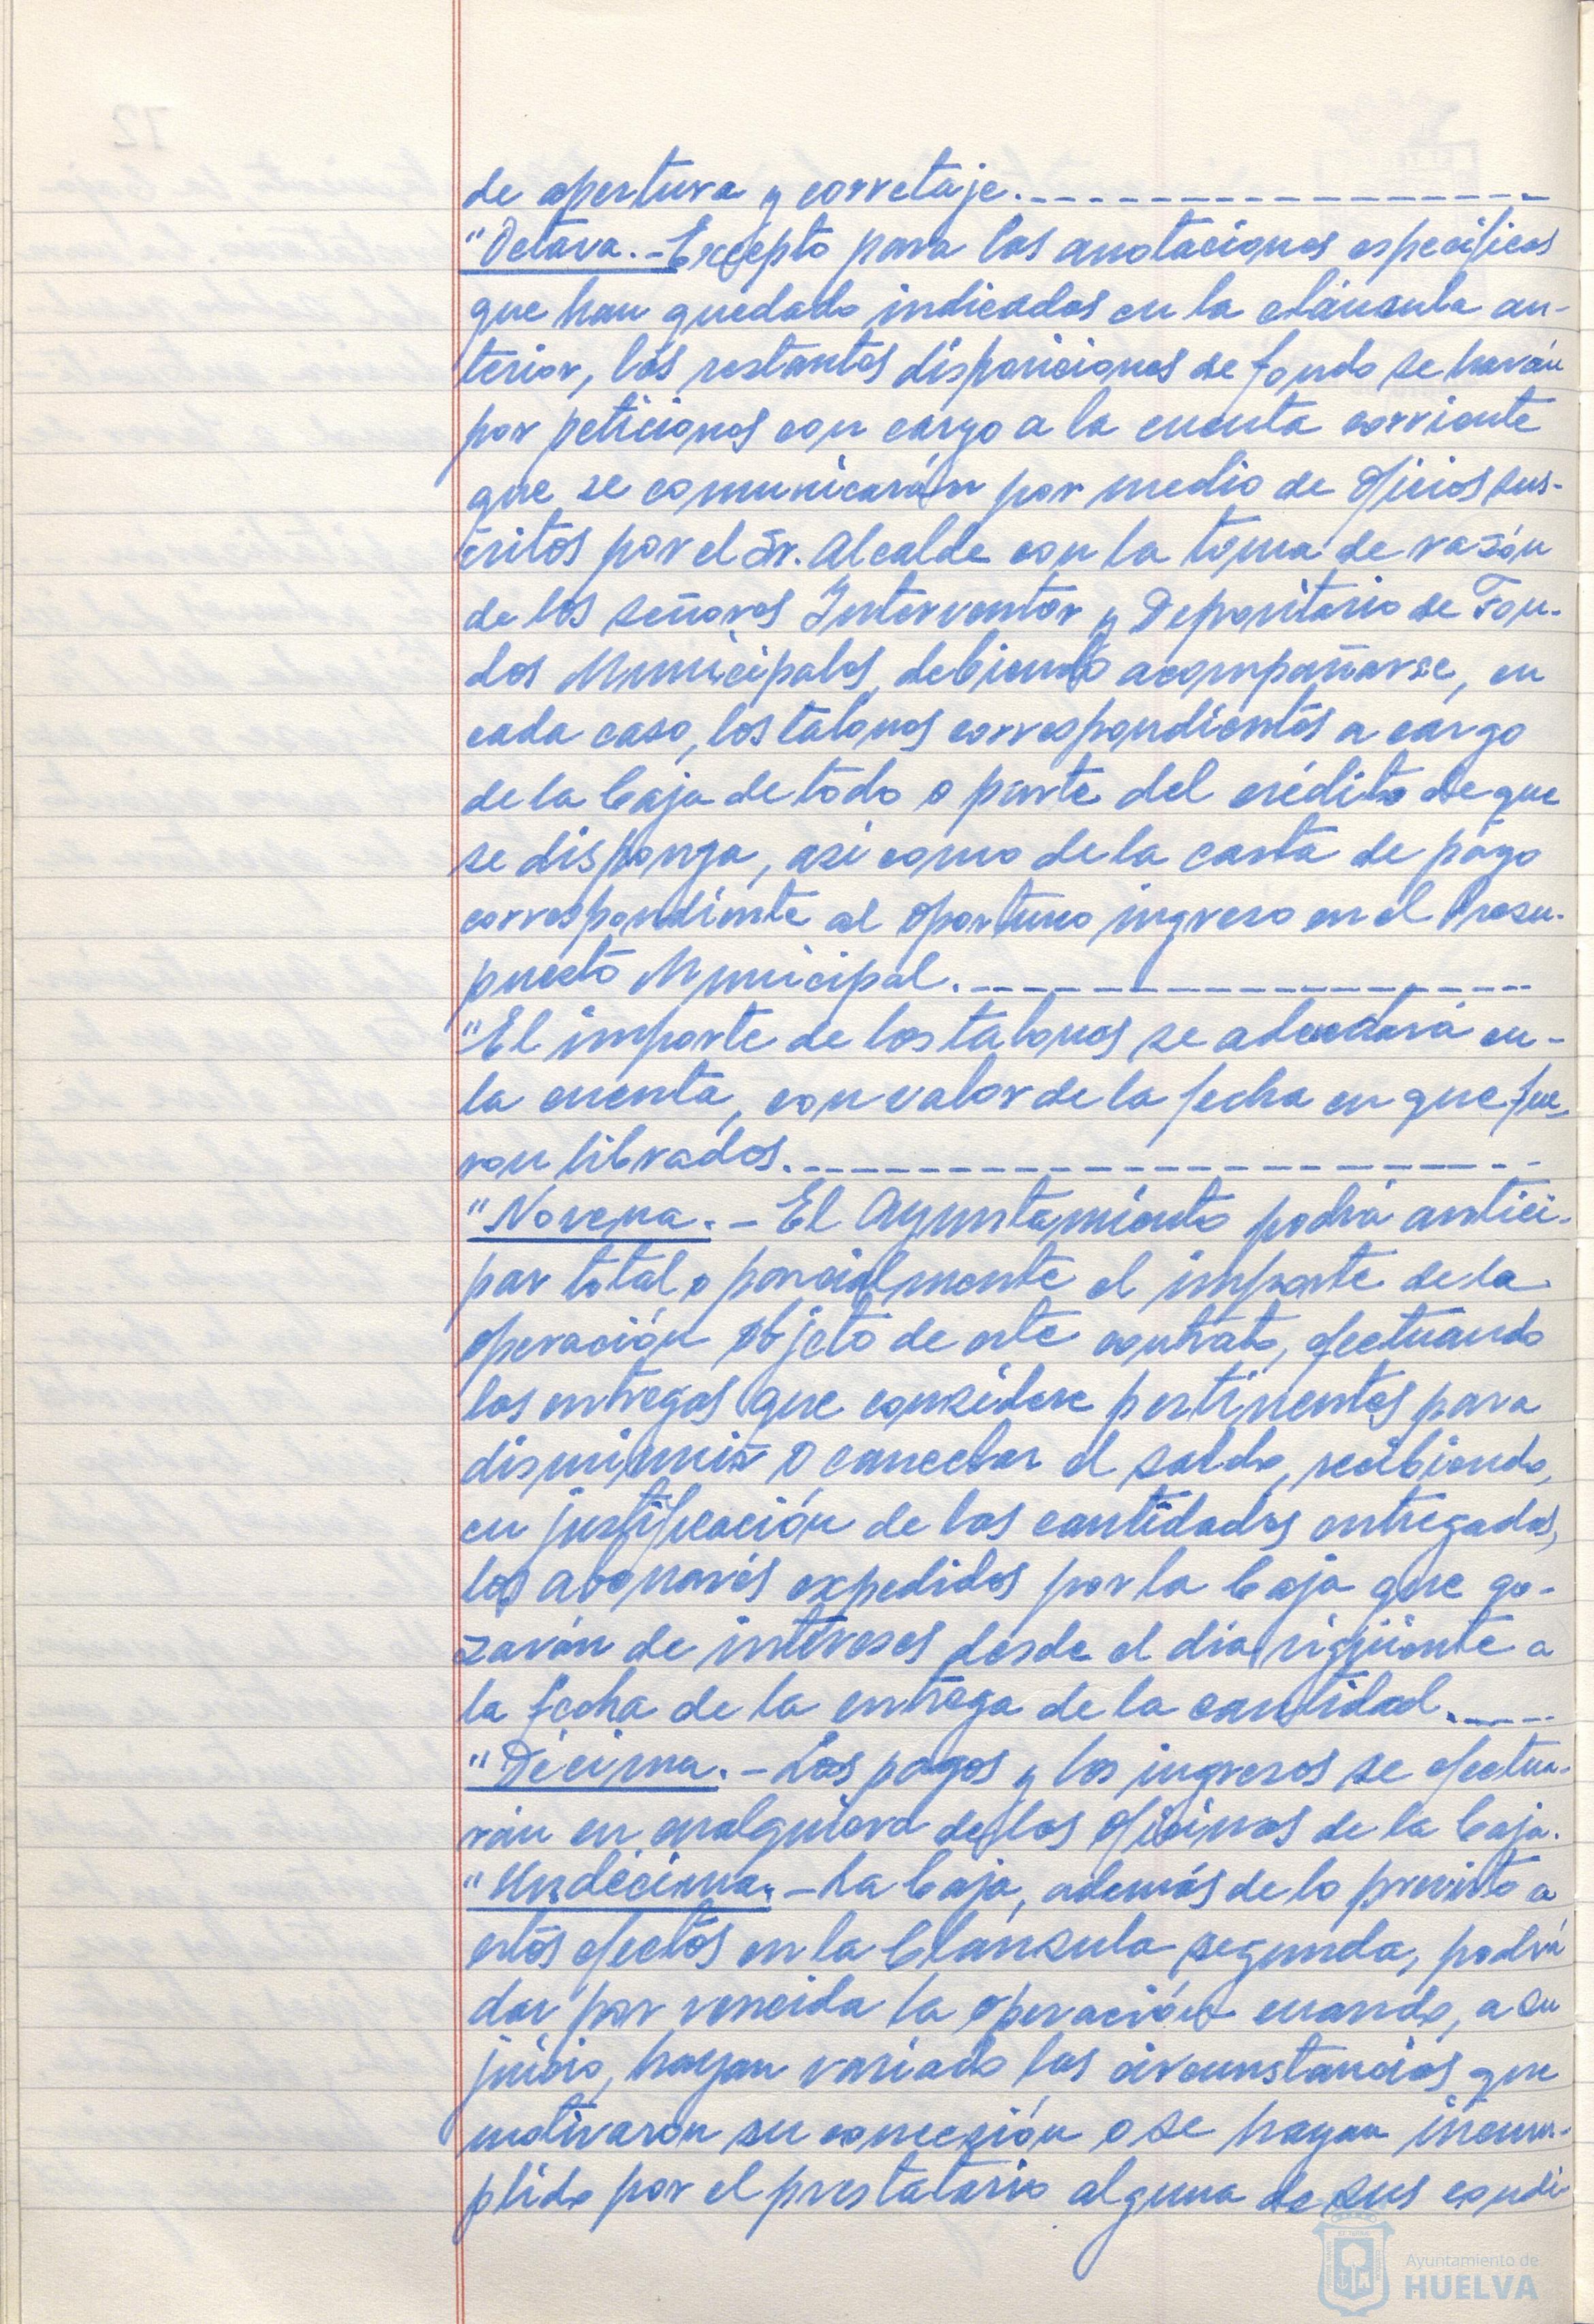 de apertura y corretaje.
"Octava.- Excepto para las anotaciones específicas
que han quedado indicadas en la cláusula an-
terior, las restantes disposiciones de fondo se harán
por peticiones con cargo a la cuenta corriente
que se comunicarán por medio de oficios sus-
critos por el Sr. Alcalde con la toma de razón
de los señores Interventor y Depositario de Fon-
dos Municipales, debiendo acompañarse, en
cada caso, los talones correspondientes a cargo
de la Caja de todo o parte del crédito de que
se disponga, asi como de la carta de pago
correspondiente al oportuno ingreso en el Presu-
puesto Municipal.
"El importe de los talones se adeudará en-
la cuenta, con valor de la fecha en que fue-
ron librados.
"Novena.- El Ayuntamiento podrá antici-
par total o parcialmente el importe de la
operación objeto de este contrato, efectuando
las entregas que considere pertinentes para
disminuir o cancelar el saldo, recibiendo,
en justificación de las cantidades entregadas,
los abonarés expedidos por la Caja que go-
zarán de intereses desde el día sigüiente a
la fecha de la entrega de la cantidad.
"Décima.- Los pagos y los ingresos se efectua-
rán en cualquiera de las oficinas de la Caja.
"Undécima.- La Caja, además de lo previsto a
estos efectos en la Cláusula segunda, podrá
dar por vencida la operación cuando, a su
juicio, hayan variado las circunstancias que
motivaron su concesión o se hayan incum-
plido por el prestatario alguna de sus condi-
Ayuntamiento de
HUELVA